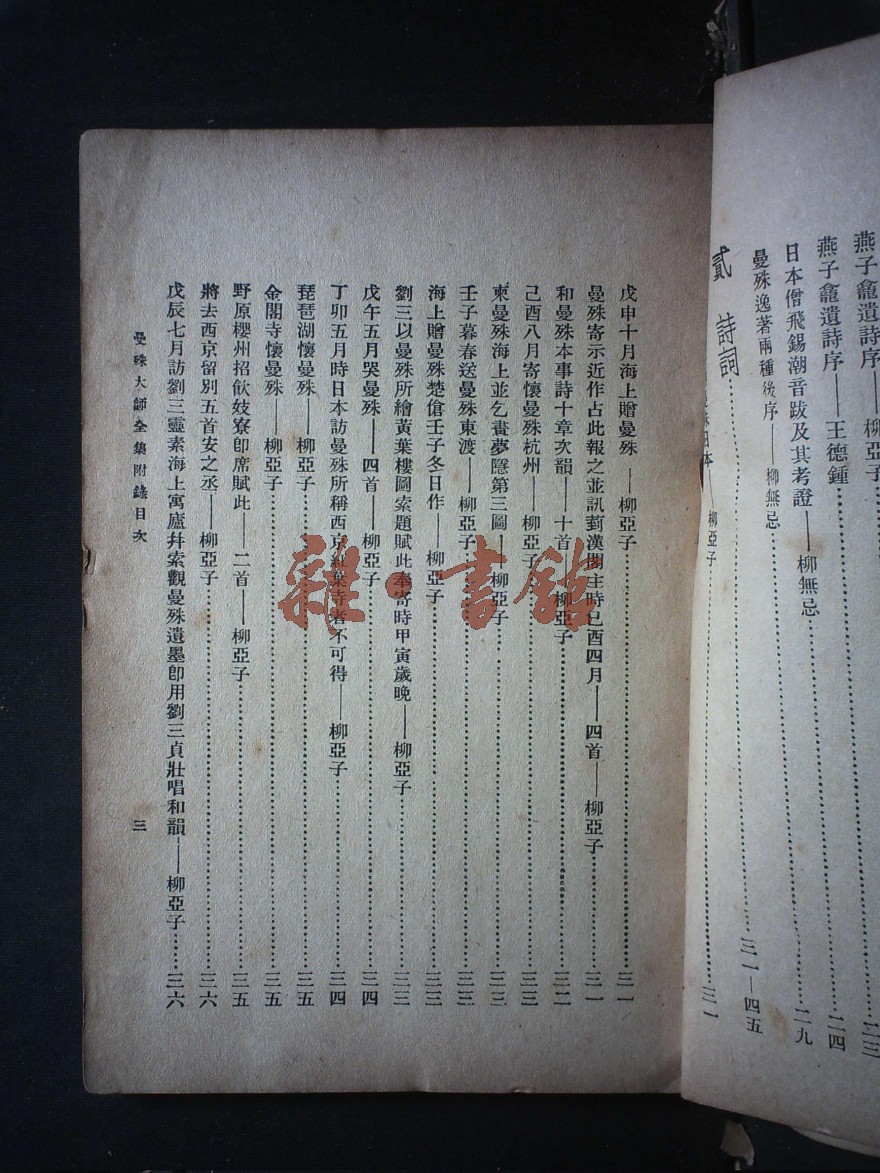 燕子龕遺詩序——柳亞子……二三
燕子龕遺詩序——王德鍾……二四
日本僧飛錫潮音跋及其考證——柳無忌……二九
曼殊逸著兩種後序——柳無忌
貳 詩詞……三一—四五
日本——柳亞子……三一
戊申十月海上贈曼殊——柳亞子……三一
曼殊寄示近作占此報之並訊劉漢閣主時己酉四月——四首——柳亞子……三一
和曼殊本事詩十章次韻——十首——柳亞子……三二
己酉八月寄懷曼殊杭州——柳亞子……三三
柬曼殊海上並乞畫夢隱第三圖——柳亞子……三三
壬子暮春送曼殊東渡——柳亞子……三三
海上贈曼殊楚傖壬子冬日作——柳亞子……三三
劉三以曼殊所繪黃葉樓圖索題賦此奉寄時甲寅歲晚——柳亞子……三三
戊午五月哭曼殊——四首——柳亞子……三四
丁卯五月時日本訪曼殊所稱西京紅葉寺者不可得——柳亞子……三四
琵琶湖懷曼殊——柳亞子……三五
金閣寺懷曼殊——柳亞子……三五
野原櫻州招飲妓寮卽席賦此——二首——柳亞子……三五
將去西京留別五首安之丞——柳亞子……三六
戊辰七月訪劉三靈素海上寓廬幷索觀曼殊遺墨卽用劉三貞壯唱和韻——柳亞子……三六
曼殊大師全集附錄目次 三
雜·書館